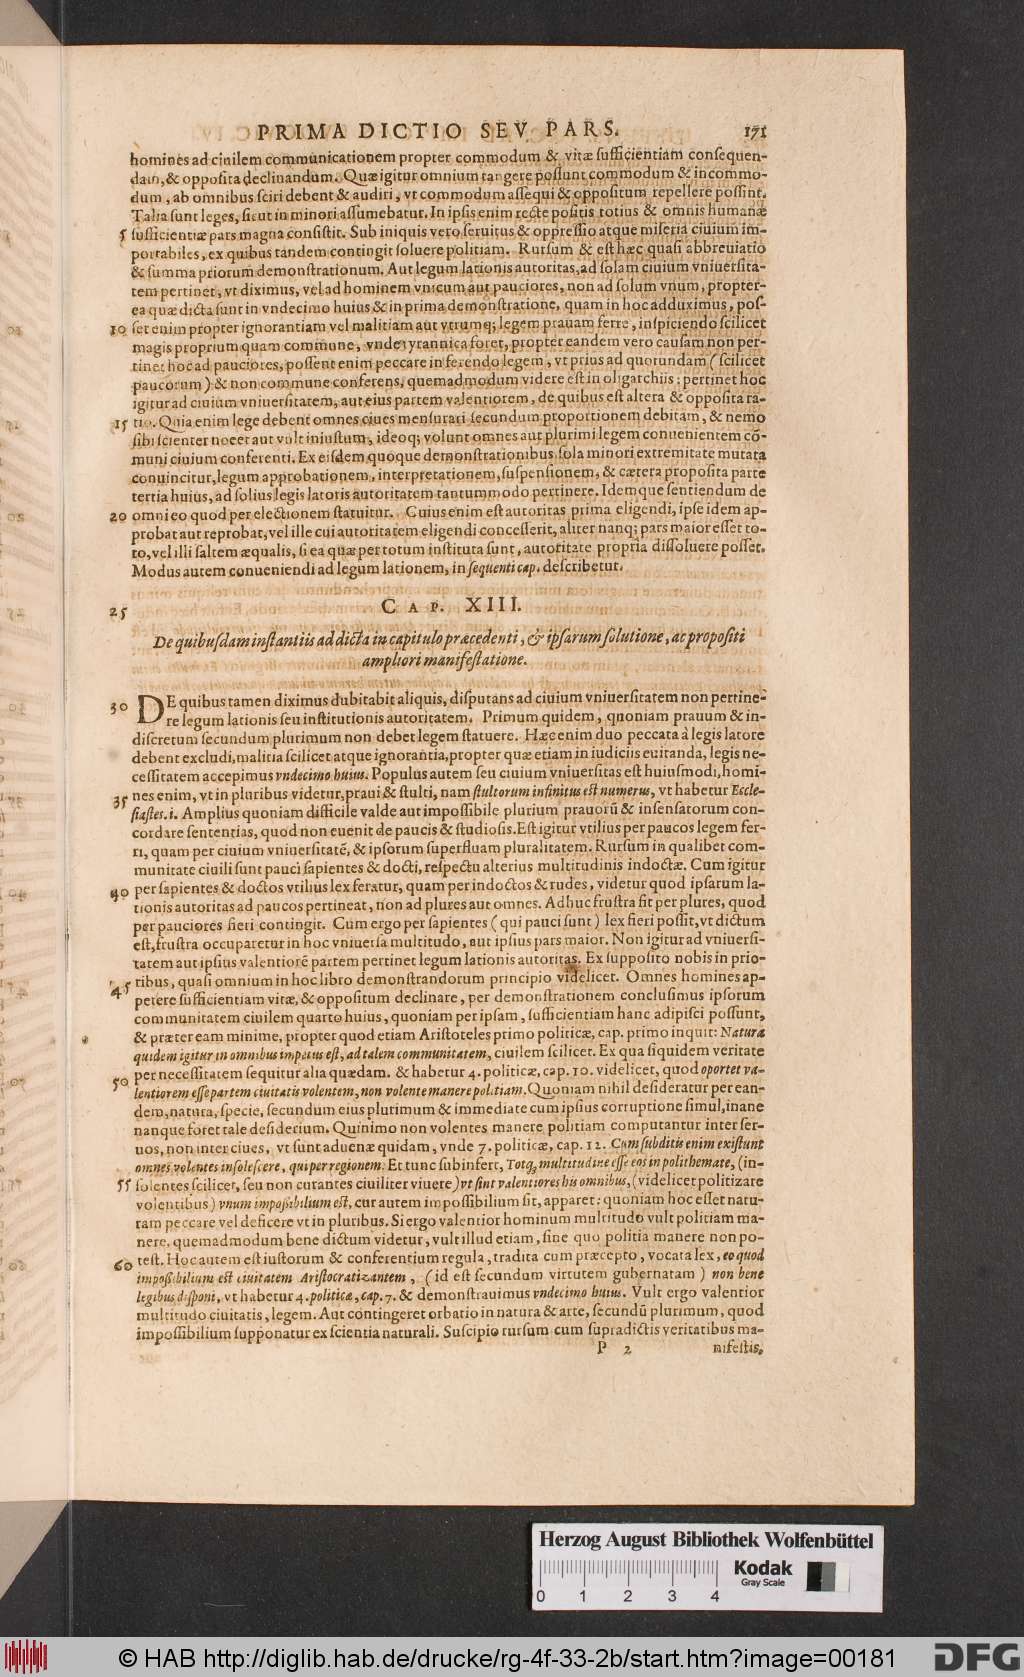 PRIMA DICTIO SEV PARS. 171
homines ad ciuilem communicationem propter commodum & vitæ sufficientiam consequen-
dam, & opposita declinandum. Quæ igitur omnium tangere possunt commodum & incommo-
dum, ab omnibus sciri debent & audiri, vt commodum assequi & oppositum repellere possint.
Talia sunt leges, sicut in minori assumebatur. In ipsis enim recte positis totius & omnis humanæ
5 sufficientiæ pars magna consistit. Sub iniquis vero seruitus & oppressio atque miseria ciuium im-
portabiles, ex quibus tandem contingit soluere politiam. Rursum & est hæc quasi abbreuiatio
& summa priorum demonstrationum. Aut legum lationis autoritas, ad solam ciuium vniuersita-
tem pertinet, vt diximus, vel ad hominem vnicum aut pauciores, non ad solum vnum, propter-
ea quæ dicta sunt in vndecimo huius & in prima demonstratione, quam in hoc adduximus, pos-
10 set enim propter ignorantiam vel malitiam aut vtrumq; legem prauam ferre, inspiciendo scilicet
magis proprium quam commune, vnde tyrannica foret, propter eandem vero causam non per-
tinet hoc ad pauciores, possent enim peccare in ferendo legem, vt prius ad quorundam (scilicet
paucorum) & non commune conferens, quemadmodum videre est in oligarchiis: pertinet hoc
igitur ad ciuium vniuersitatem, aut eius partem valentiorem, de quibus est altera & opposita ra-
15 tio. Quia enim lege debent omnes ciues mensurari secundum proportionem debitam, & nemo
sibi scienter nocet aut vult iniustum, ideoq; volunt omnes aut plurimi legem conuenientem cõ-
muni ciuium conferenti. Ex eisdem quoque demonstrationibus sola minori extremitate mutata
conuincitur, legum approbationem, interpretationem, suspensionem, & cætera proposita parte
tertia huius, ad solius legis latoris autoritatem tantummodo pertinere. Idemque sentiendum de
20 omni eo quod per electionem statuitur. Cuius enim est autoritas prima eligendi, ipse idem ap-
probat aut reprobat, vel ille cui autoritatem eligendi concesserit, aliter nanq; pars maior esset to-
to, vel illi saltem æqualis, si ea quæ per totum instituta sunt, autoritate propria dissoluere posset.
Modus autem conueniendi ad legum lationem, in sequenti cap. describetur.
25 CAP. XIII.
De quibusdam instantiis ad dicta in capitulo præcedenti, & ipsarum solutione, ac propositi
ampliori manifestatione.
30 DE quibus tamen diximus dubitabit aliquis, disputans ad ciuium vniuersitatem non pertine-
re legum lationis seu institutionis autoritatem. Primum quidem, quoniam prauum & in-
discretum secundum plurimum non debet legem statuere. Hæc enim duo peccata à legis latore
debent excludi, malitia scilicet atque ignorantia, propter quæ etiam in iudiciis euitanda, legis ne-
cessitatem accepimus vndecimo huius. Populus autem seu ciuium vniuersitas est huiusmodi, homi-
35 nes enim, vt in pluribus videtur, praui & stulti, nam stultorum infinitus est numerus, vt habetur Eccle-
siastes. i. Amplius quoniam difficile valde aut impossibile plurium prauorũ & insensatorum con-
cordare sententias, quod non euenit de paucis & studiosis. Est igitur vtilius per paucos legem fer-
ri, quam per ciuium vniuersitatẽ, & ipsorum superfluam pluralitatem. Rursum in qualibet com-
munitate ciuili sunt pauci sapientes & docti, respectu alterius multitudinis indoctæ. Cum igitur
40 per sapientes & doctos vtilius lex feratur, quam per indoctos & rudes, videtur quod ipsarum la-
tionis autoritas ad paucos pertineat, non ad plures aut omnes. Adhuc frustra fit per plures, quod
per pauciores fieri contingit. Cum ergo per sapientes (qui pauci sunt) lex fieri possit, vt dictum
est, frustra occuparetur in hoc vniuersa multitudo, aut ipsius pars maior. Non igitur ad vniuersi-
tatem aut ipsius valentiorẽ partem pertinet legum lationis autoritas. Ex supposito nobis in prio-
45 ribus, quasi omnium in hoc libro demonstrandorum principio videlicet. Omnes homines ap-
petere sufficientiam vitæ, & oppositum declinare, per demonstrationem conclusimus ipsorum
communitatem ciuilem quarto huius, quoniam per ipsam, sufficientiam hanc adipisci possunt,
& præter eam minime, propter quod etiam Aristoteles primo politicæ, cap. primo inquit: Natura
quidem igitur in omnibus impetus est, ad talem communitatem, ciuilem scilicet. Ex qua siquidem veritate
50 per necessitatem sequitur alia quædam. & habetur 4. politicæ, cap. 10. videlicet, quod oportet va-
lentiorem esse partem ciuitatis volentem, non volente manere politiam. Quoniam nihil desideratur per ean-
dem, natura, specie, secundum eius plurimum & immediate cum ipsius corruptione simul, inane
nanque foret tale desiderium. Quinimo non volentes manere politiam computantur inter ser-
uos, non inter ciues, vt sunt aduenæ quidam, vnde 7. politicæ, cap. 12. Cum subditis enim existunt
omnes volentes insolescere, qui per regionem. Et tunc subinfert, Totq; multitudine esse eos in polithemate, (in-
55 solentes scilicet, seu non curantes ciuiliter viuere) vt sint valentiores his omnibus, (videlicet politizare
volentibus) vnum impossibilium est, cur autem impossibilium sit, apparet: quoniam hoc esset natu-
ram peccare vel deficere vt in pluribus. Si ergo valentior hominum multitudo vult politiam ma-
nere, quemadmodum bene dictum videtur, vult illud etiam, sine quo politia manere non po-
60 test. Hoc autem est iustorum & conferentium regula, tradita cum præcepto, vocata lex, eo quod
impossibilium est ciuitatem Aristocratizantem, (id est secundum virtutem gubernatam) non bene
legibus disponi, vt habetur 4. politicæ, cap. 7. & demonstrauimus vndecimo huius. Vult ergo valentior
multitudo ciuitatis, legem. Aut contingeret orbatio in natura & arte, secundũ plurimum, quod
impossibilium supponatur ex scientia naturali. Suscipio rursum cum supradictis veritatibus ma-
P 2 nifestis,
Herzog August Bibliothek Wolfenbüttel
0 1 2 3 4
Kodak
Gray Scale
© HAB http://diglib.hab.de/drucke/rg-4f-33-2b/start.htm?image=00181
DFG